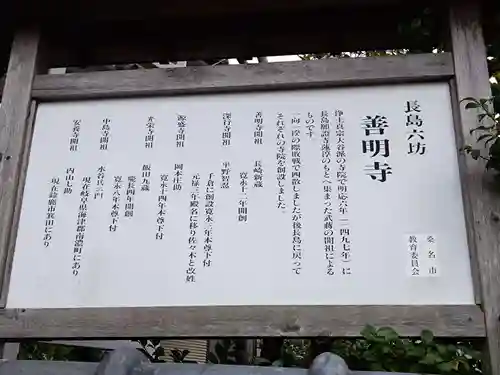 長島六坊
善明寺
桑名市
教育委員会
浄土真宗大谷派の寺院で明応六年(一四九七年)に
長島願證寺蓮淳のもとへ集まった武蒋の開祖による
ものです。
一向一揆の際敗戦で四散しましたが後長島に戻って
それぞれの寺院を創設しました。
善明寺開祖 長崎新蔵
寛永十二年開創
深行寺開祖 平野智忍
千倉に創設寛永三年本尊下付
元禄三年殿名に移り佐々木と改姓
源盛寺開祖 岡本庄助
寛永十四年本尊下付
光栄寺開祖 飯田九蔵
慶長四年開創
寛永八年本尊下付
中島寺開祖 水谷兵三門
現在岐阜県海津郡南濃町にあり
安養寺開祖 内山七助
現在鈴鹿市箕田にあり